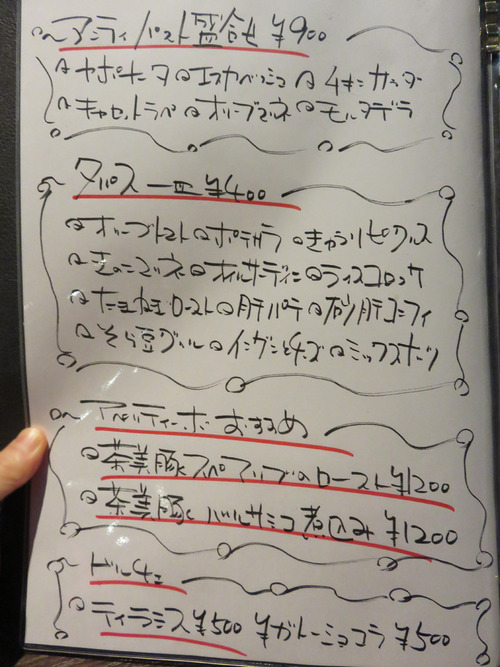 アンティパスト盛合せ ¥900
カポナータ エスカベッシュ チキンガッター
キャロットラペ オリーブマリネ モルタデラ
タパス一皿 ¥400
オリーブトマト ポテサラ きゅうりピクルス
きのこマリネ オイルサーディン ライスコロッケ
たまねぎロースト 肝パテ 砂肝コンフィ
そら豆グリル インゲンとチーズ ミックスナッツ
アペリティーボおすすめ
茶美豚スペアリブのロースト ¥1200
茶美豚 バルサミコ煮込み ¥1200
ドルチェ
ティラミス ¥500 ガトーショコラ ¥500